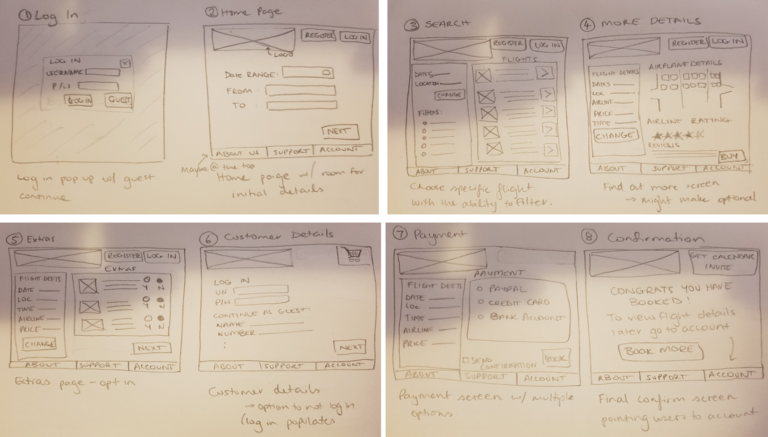 ① Log In
LOG IN
x
USERNAME
P/W
LOG IN GUEST
Log in pop up w/ guest
continue
② Home Page
REGISTER LOG IN
LOGO
DATE RANGE:
FROM:
TO:
NEXT
ABOUT US SUPPORT ACCOUNT
Maybe @ the top
Home page w/ room for
initial details
③ SEARCH
REGISTER LOG IN
FLIGHTS
DATE
LOCATION
CHANGE
Filters:
ABOUT SUPPORT ACCOUNT
Choose specific flight
with the ability to filter.
④ MORE DETAILS
REGISTER LOG IN
FLIGHT DETAILS
DATES
LOC
AIRLINE
PRICE
TIME
CHANGE
AIRPLANE DETAILS
AIRLINE RATING
BUY
ABOUT SUPPORT ACCOUNT
Find out more screen
→ might make optional
⑤ Extras
REGISTER LOG IN
FLIGHT DEETS
DATE
LOC
TIME
AIRLINE
PRICE
CHANGE
Extras
Y N
Y N
Y N
NEXT
ABOUT SUPPORT ACCOUNT
Extras page - opt in
⑥ Customer Details
LOG IN
UN:
P/W
CONTINUE AS GUEST:
NAME
NUMBER
NEXT
ABOUT SUPPORT ACCOUNT
Customer details
→ option to not log in
(log in populates
⑦ Payment
FLIGHT DEETS
DATE
LOC
TIME
AIRLINE
PRICE
PAYMENT
PAYPAL
CREDIT CARD
BANK ACCOUNT
SEND
CONFIRMATION
BOOK
ABOUT SUPPORT ACCOUNT
Payment screen w/ multiple
options
⑧ Confirmation
GET CALENDAR
INVITE
CONGRATS YOU HAVE
BOOKED!
To view flight details
later go to account
BOOK MORE
ABOUT SUPPORT ACCOUNT
Final confirm screen
pointing users to account